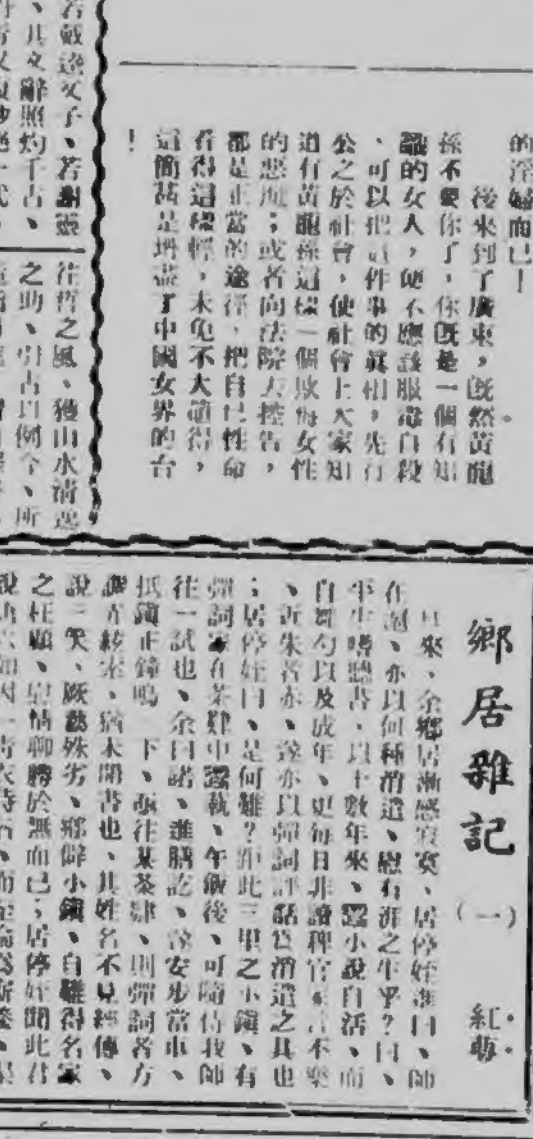 的淫婦而已！
後來到了廣東，既然黃龍
孫不要你了，你既是一個有知
識的女人，便不應該服毒自殺
、可以把這件事的眞相，先行
公之於社會，使社會上大家知
道有黃龍孫這樣一個欺侮女性
的惡魔；或者向法院去控告，
都是正當的途徑，把自己性命
看得這樣輕，未免不大值得，
這簡甚是坍盡了中國女界的台
！
若謝靈
、其文辭照灼千古、
往哲之風、獲山水淸逸
之助、引古以例今、所
鄉居雜記
（一）
紅
日來、余鄉居漸感寂寞、居停姪進曰、師
在滬、亦以何種消遣、慰有涯之生乎？曰、
半生嗜聽書、以十數年來、小說自活、而
自舞勺以及成年、更每日非讀稗官 言不樂
、近朱者赤、遂亦以彈詞評話爲消遣之具也
；居停姪曰、是何難？距此三里之小鎭、有
彈詞家在茶肆中 執、午飯後、可隨侍我師
往一試也、余曰諾、進膳訖、遂安步當車、
抵鎭正鐘鳴一下、 往某茶肆、則彈詞者方
調弄絃索、猶未開書也、其姓名不見經傳、
說三笑、厥藝殊劣、鄉僻小鎭、自難得名家
之枉顧、 情聊勝於無而已；居停姪聞此君